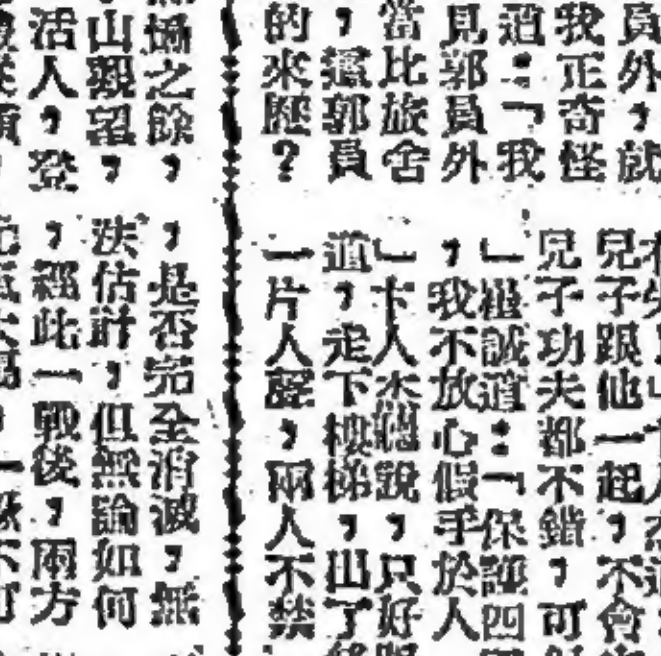 員外，就
我正奇怪
道：「我
見郭員外
當比旅舍
，還郭員
的來歷？
兒子跟他一起，不會
兒子功夫都不錯，可
」崔誠道：「保護四
，我不放心假手於人
」卞人杰聽說，只好
道，走下樓梯，出了
一片人聲，兩人不禁
憾之餘，
山觀望，
活人，登
，是否完全消滅，無
法估計，但無論如何
，經此一戰後，兩方